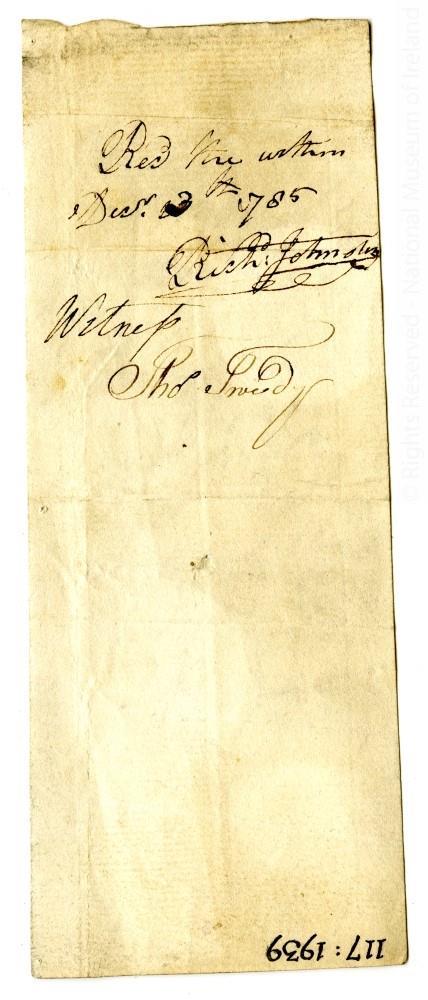 Recd the within
Decr. 13th 1785
Richd: Johnston
Witness
Thos Tweedy
117:1939
© Rights Reserved - National Museum of Ireland